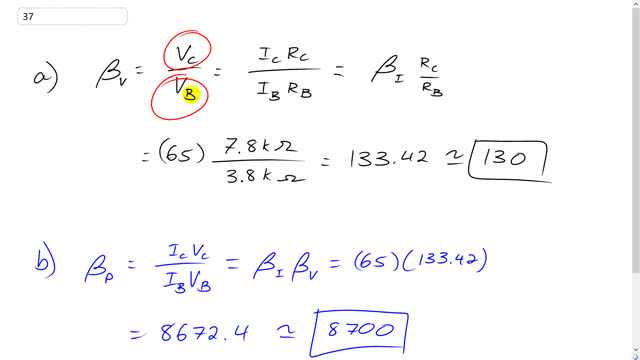 37
a) β_V = V_C / V_B = I_C R_C / I_B R_B = β_I R_C / R_B
= (65) 7.8 kΩ / 3.8 kΩ = 133.42 ≃ 130
b) β_P = I_C V_C / I_B V_B = β_I β_V = (65)(133.42)
= 8672.4 ≃ 8700